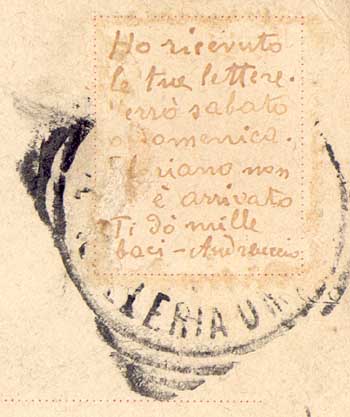 Ho ricevuto
le tue lettere.
Verrò sabato
o domenica.
Floriano non
è arrivato
Ti dò mille
baci -
LLERIA UM